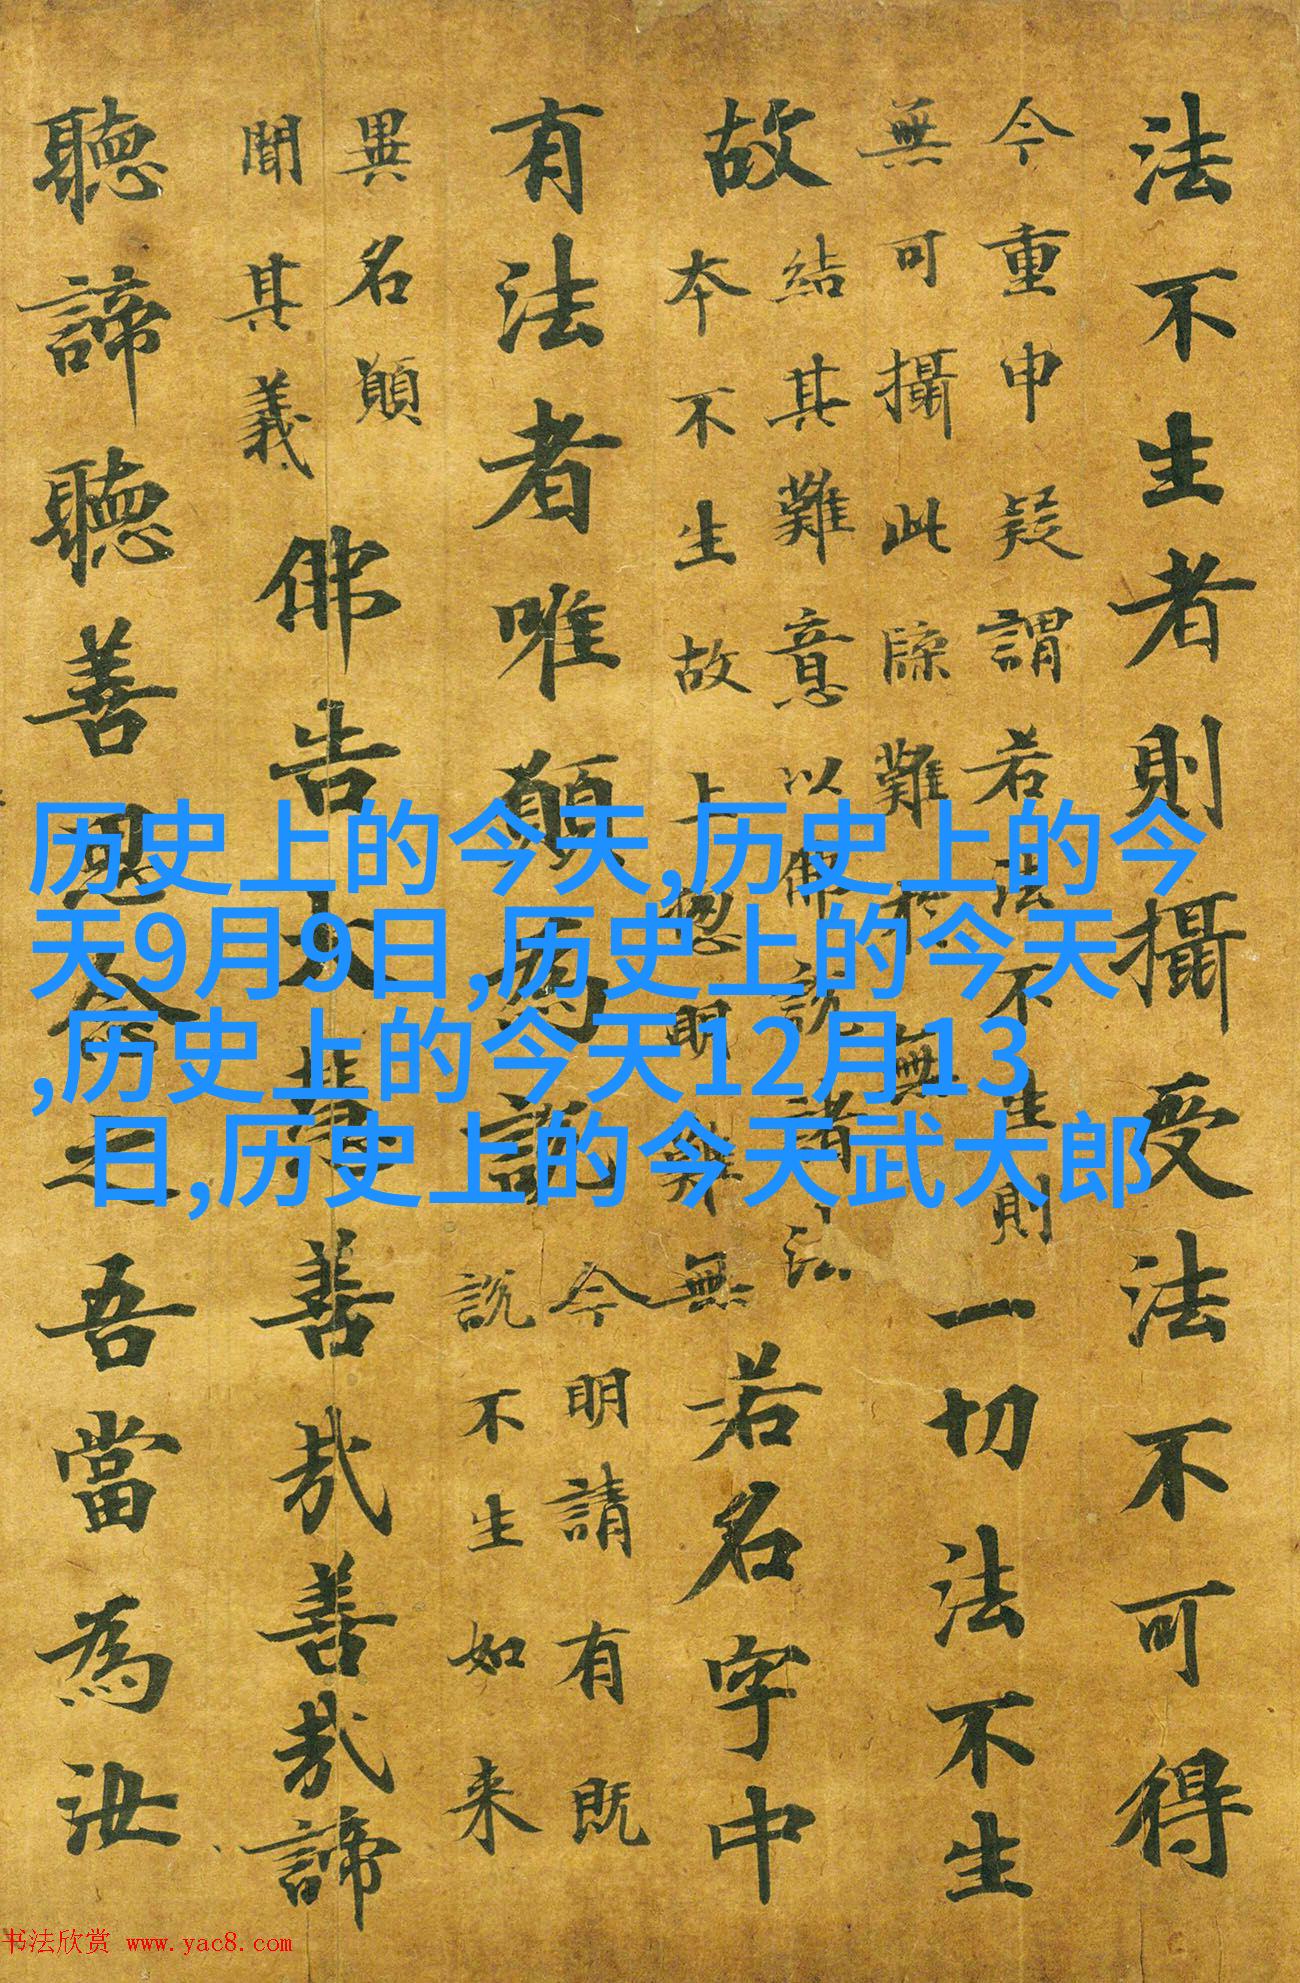 法不生者則攝受法不可得
今重申疑謂若法不生則
無可攝此牒難於無
一切法不生
故
結其難意以佛説諸法
本不生故上惣明難無
若名字中
有法者唯願為說
今明請有既
說不生如来
異名願
聞其義
佛告大慧善哉善哉諦
聽諦聽善思念之吾當為汝
历史上的今天,历史上的今
天9月9日,历史上的今天
,历史上的今天12月13
日,历史上的今天武大郎
书法欣赏 www.yac8.com